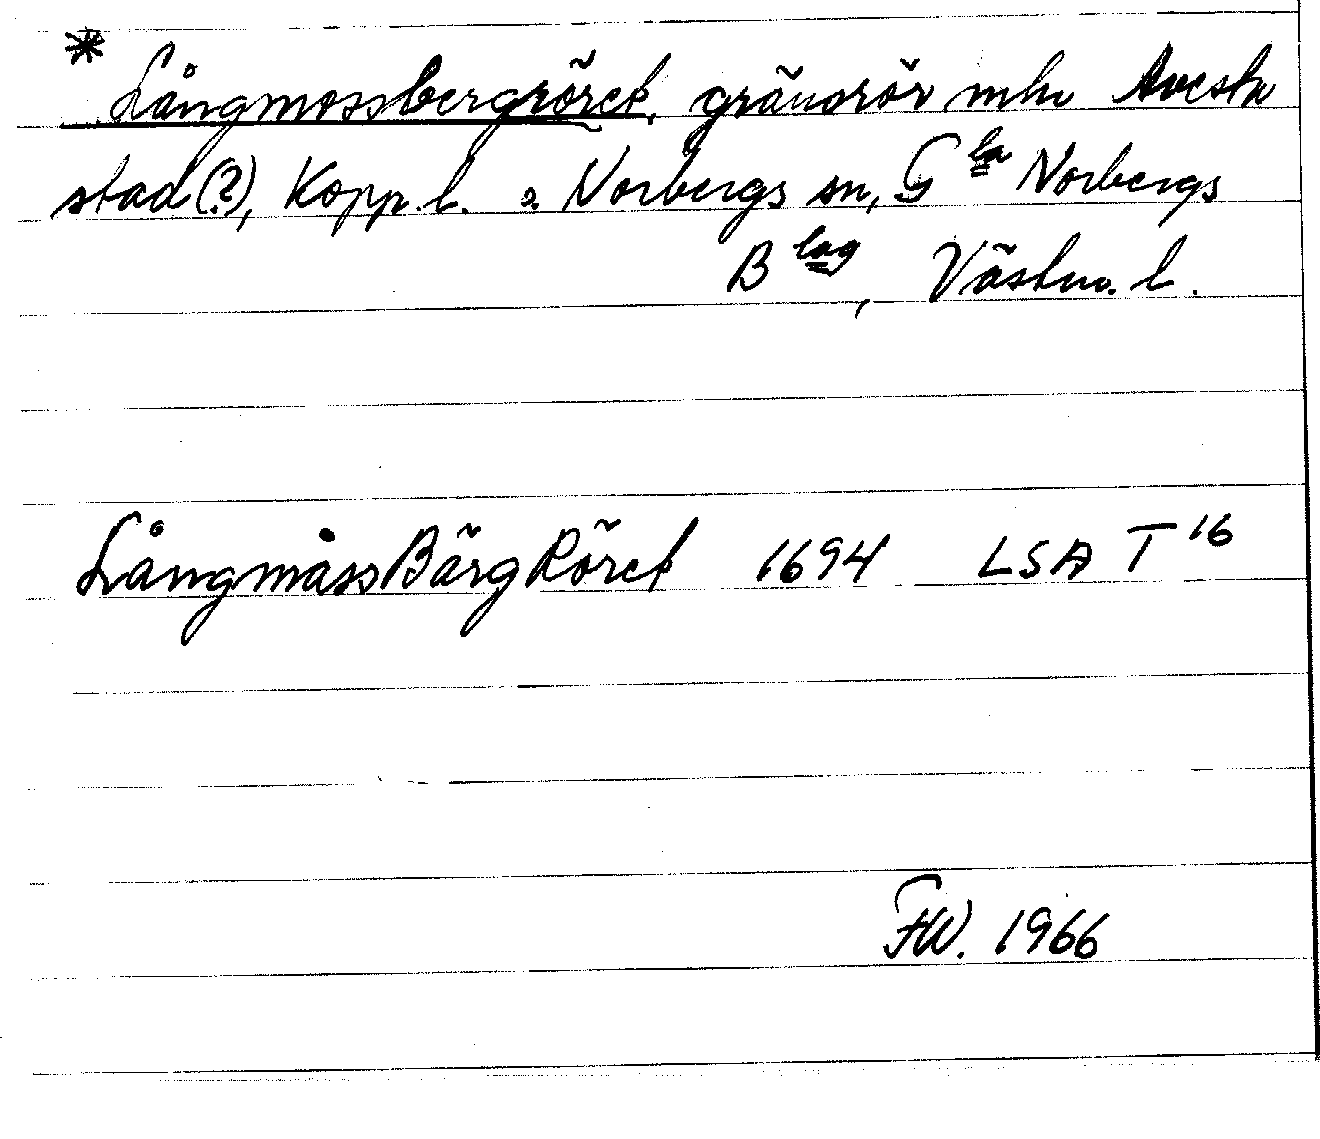 * Långmossbergröret, gränsrör mln Avesta
stad (?), Kopp. l. o. Norbergs sn, G la Norbergs
B lag, Västm. l.
LångmåssBärgRöret 1694 LSA T 16
FW. 1966